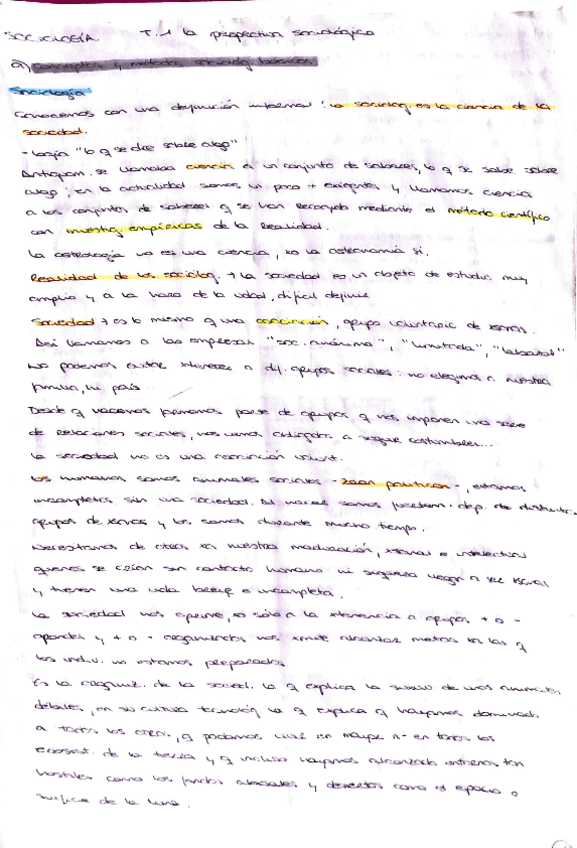 SOCIOLOGÍA. T.1 la perspectiva sociológica
a) conceptos y métodos sociológ. básicos
Sociología
Comenzamos con una definición informal: la sociolog. es la ciencia de la
sociedad.
- logía "lo q se dice sobre algo"
Antiguam. se llamaba ciencia a un conjunto de saberes, lo q se sabe sobre
algo; en la actualidad somos un poco + exigentes y llamamos ciencia
a los conjuntos de saberes q se han recogido mediante el método científico
con investig. empíricas de la realidad.
La astrología no es una ciencia, la astronomía sí.
Realidad de los sociólog. → la sociedad es un objeto de estudio muy
amplio y a la hora de la verdad, difícil definir
Sociedad → es lo mismo q una asociación, grupo voluntario de
Así llamamos a las empresas "soc. anónima", "limitada", "laboral"
No podemos entre intereses a dif. grupos sociales: no elegimos a nuestra
familia, ni país
Desde q nacemos formamos parte de grupos q nos imponen una serie
de relaciones sociales, nos vemos obligados a seguir costumbres...
la sociedad no es una asociación volunt.
Los humanos somos animales sociales - zoon politicon -, estamos
incompletos sin una sociedad. Al nacer somos dep. de
grupos de y los somos durante mucho tiempo.
Necesitamos de otros nuestra maduración, e intelectual
quienes se crían sin contacto humano ni siquiera llegan a ser
y tienen una vida breve e incompleta.
La sociedad nos no sólo a la a grupos + o -
grandes y + o - organizados nos alcanzar metas las q
los indiv. no estamos preparados
Es la organiz. de la socied. la q explica la de unos animales
débiles, en su cultura tecnológ. la q explica q hayamos dominado
a todos los otros, q podamos vivir en nº en todos los
ecosist. de la tierra y q incluso hayamos alcanzado entornos tan
hostiles como los fondos abisales y desiertos como el espacio o
superficie de la luna.